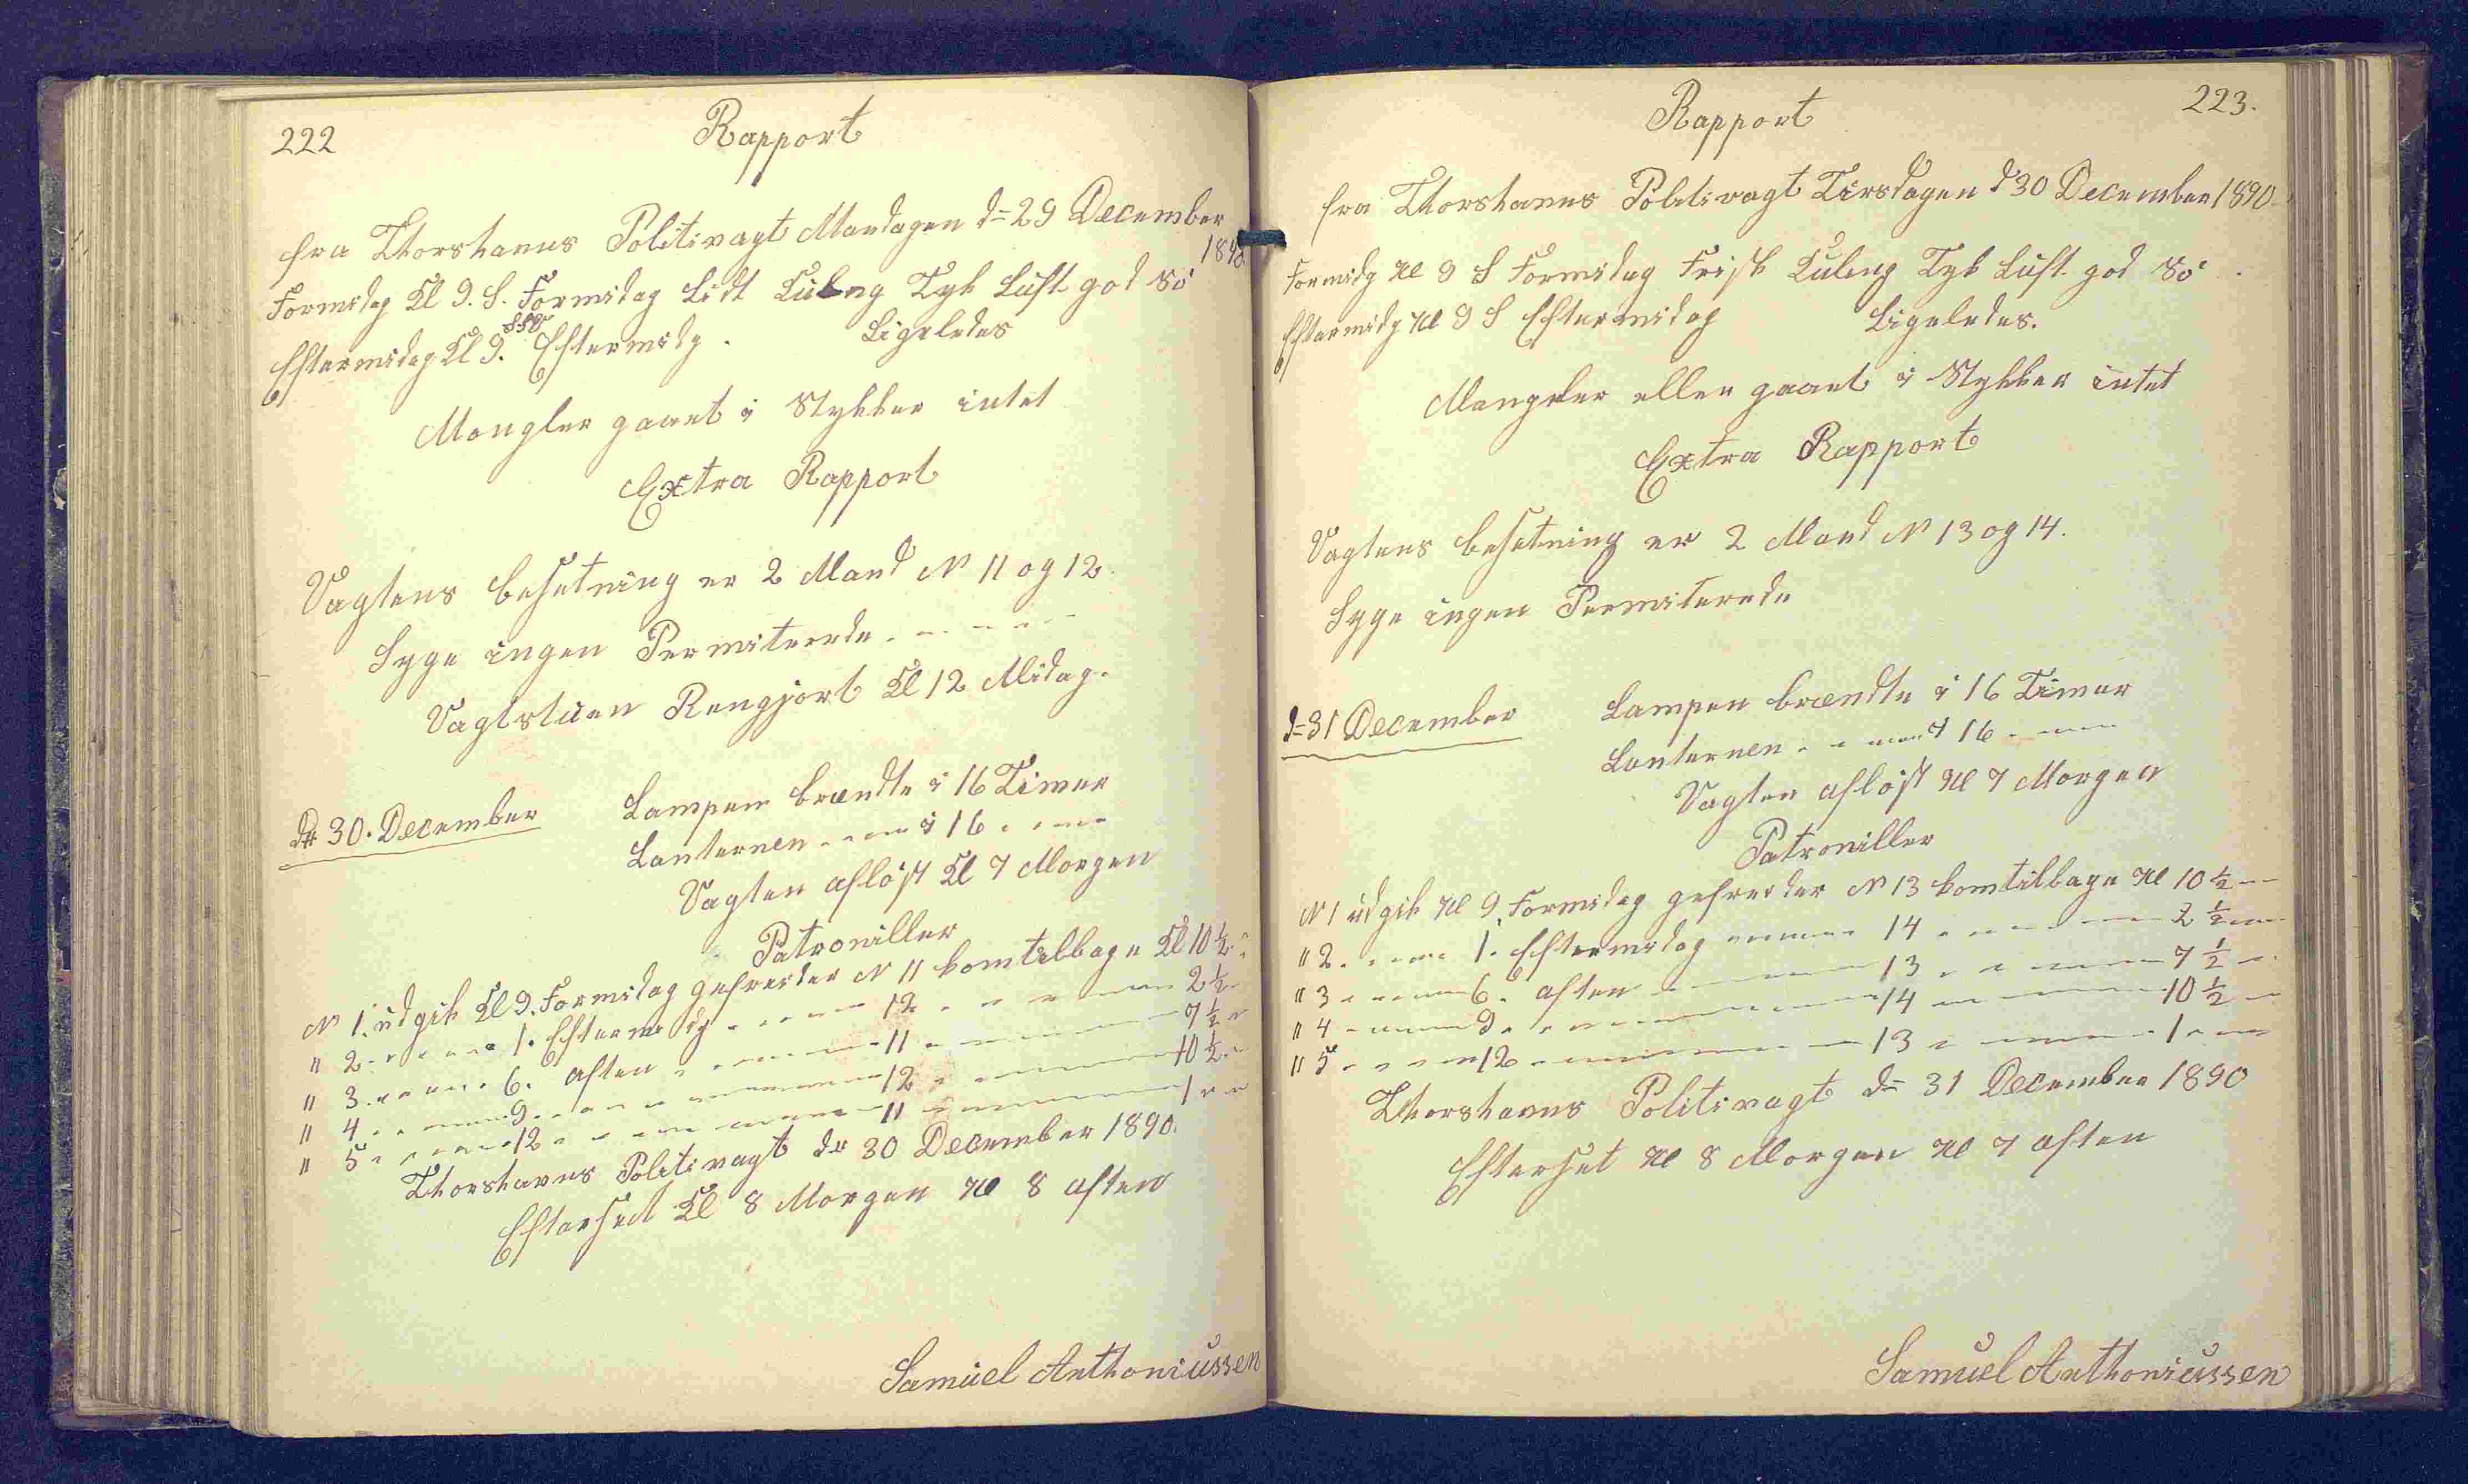 222
Rapport
fra Thorshavns Politivagt Mandagen d= 29 December
1890
Formidg Kl 9. S. Formidag Lidt Kuling Tyk Luft god Sö
SSV
Eftermidag Kl 9. Eftermidg. Ligeledes
Mangler gaaet i Stykker intet
Extra Rapport
Vagtens besetning er 2 Mand N 11 og 12.
Syge ingen Permiterede - - - - -
Vagtstuen Rengjort Kl 12 Midag.
30. December
Lampen brændte i 16 Timer
Lanternen - - - - i 16 - - - -
Vagten aflöst Kl 7 Morgen
Patroniller
N 1. udgik Kl 9. Formidag gefreider N 11 kom tilbage Kl 10 ½ - -
" 2 - - - - - 1. Eftermidg - - - - - 12 - - - - - 2 ½ -
" 3 - - - - 6. aften - - - - - 11 - - - - - 7 ½ -
" 4 - - - - 9 - - - - - 12 - - - - - 10 ½ -
" 5 - - - - 12 - - - - - 11 - - - - - 1 - -
Thorshavns Politivagt 30 December 1890.
Efterset Kl 8 Morgen Kl 8 aften
Samuel Anthoniussen
223.
Rapport
fra Thorshavns Politivagt Tirsdagen d 30 December 1890.
Formidg Kl 9 S Formidag Frisk Kuling Tyk Luft god Sö
Eftermidg Kl 9 S Eftermidag Ligeledes.
Mangeler eller gaaet i Stykker intet
Extra Rapport
Vagtens besetning er 2 Mand N 13 og 14.
Syge ingen Permiterede
d= 31 December
Lampen brændte i 16 Timer
Lanternen - - - - i 16 - - -
Vagten aflöst Kl 7 Morgen
Patroniller
N 1 udgik Kl 9. Formidag gefreider N 13 kom tilbage Kl 10 ½ - -
" 2 - - - - 1. Eftermidag - - - - 14 - - - - - 2 ½ - -
" 3 - - - - 6. aften - - - - - 13 - - - - - 7 ½ - -
" 4 - - - - 9 - - - - - 14 - - - - - 10 ½ -
" 5 - - - - 12 - - - - - 13 - - - - - 1 - -
Thorshavns Politivagt d= 31 December 1890
Efterset Kl 8 Morgen Kl 7 aften
Samuel Anthoniussen